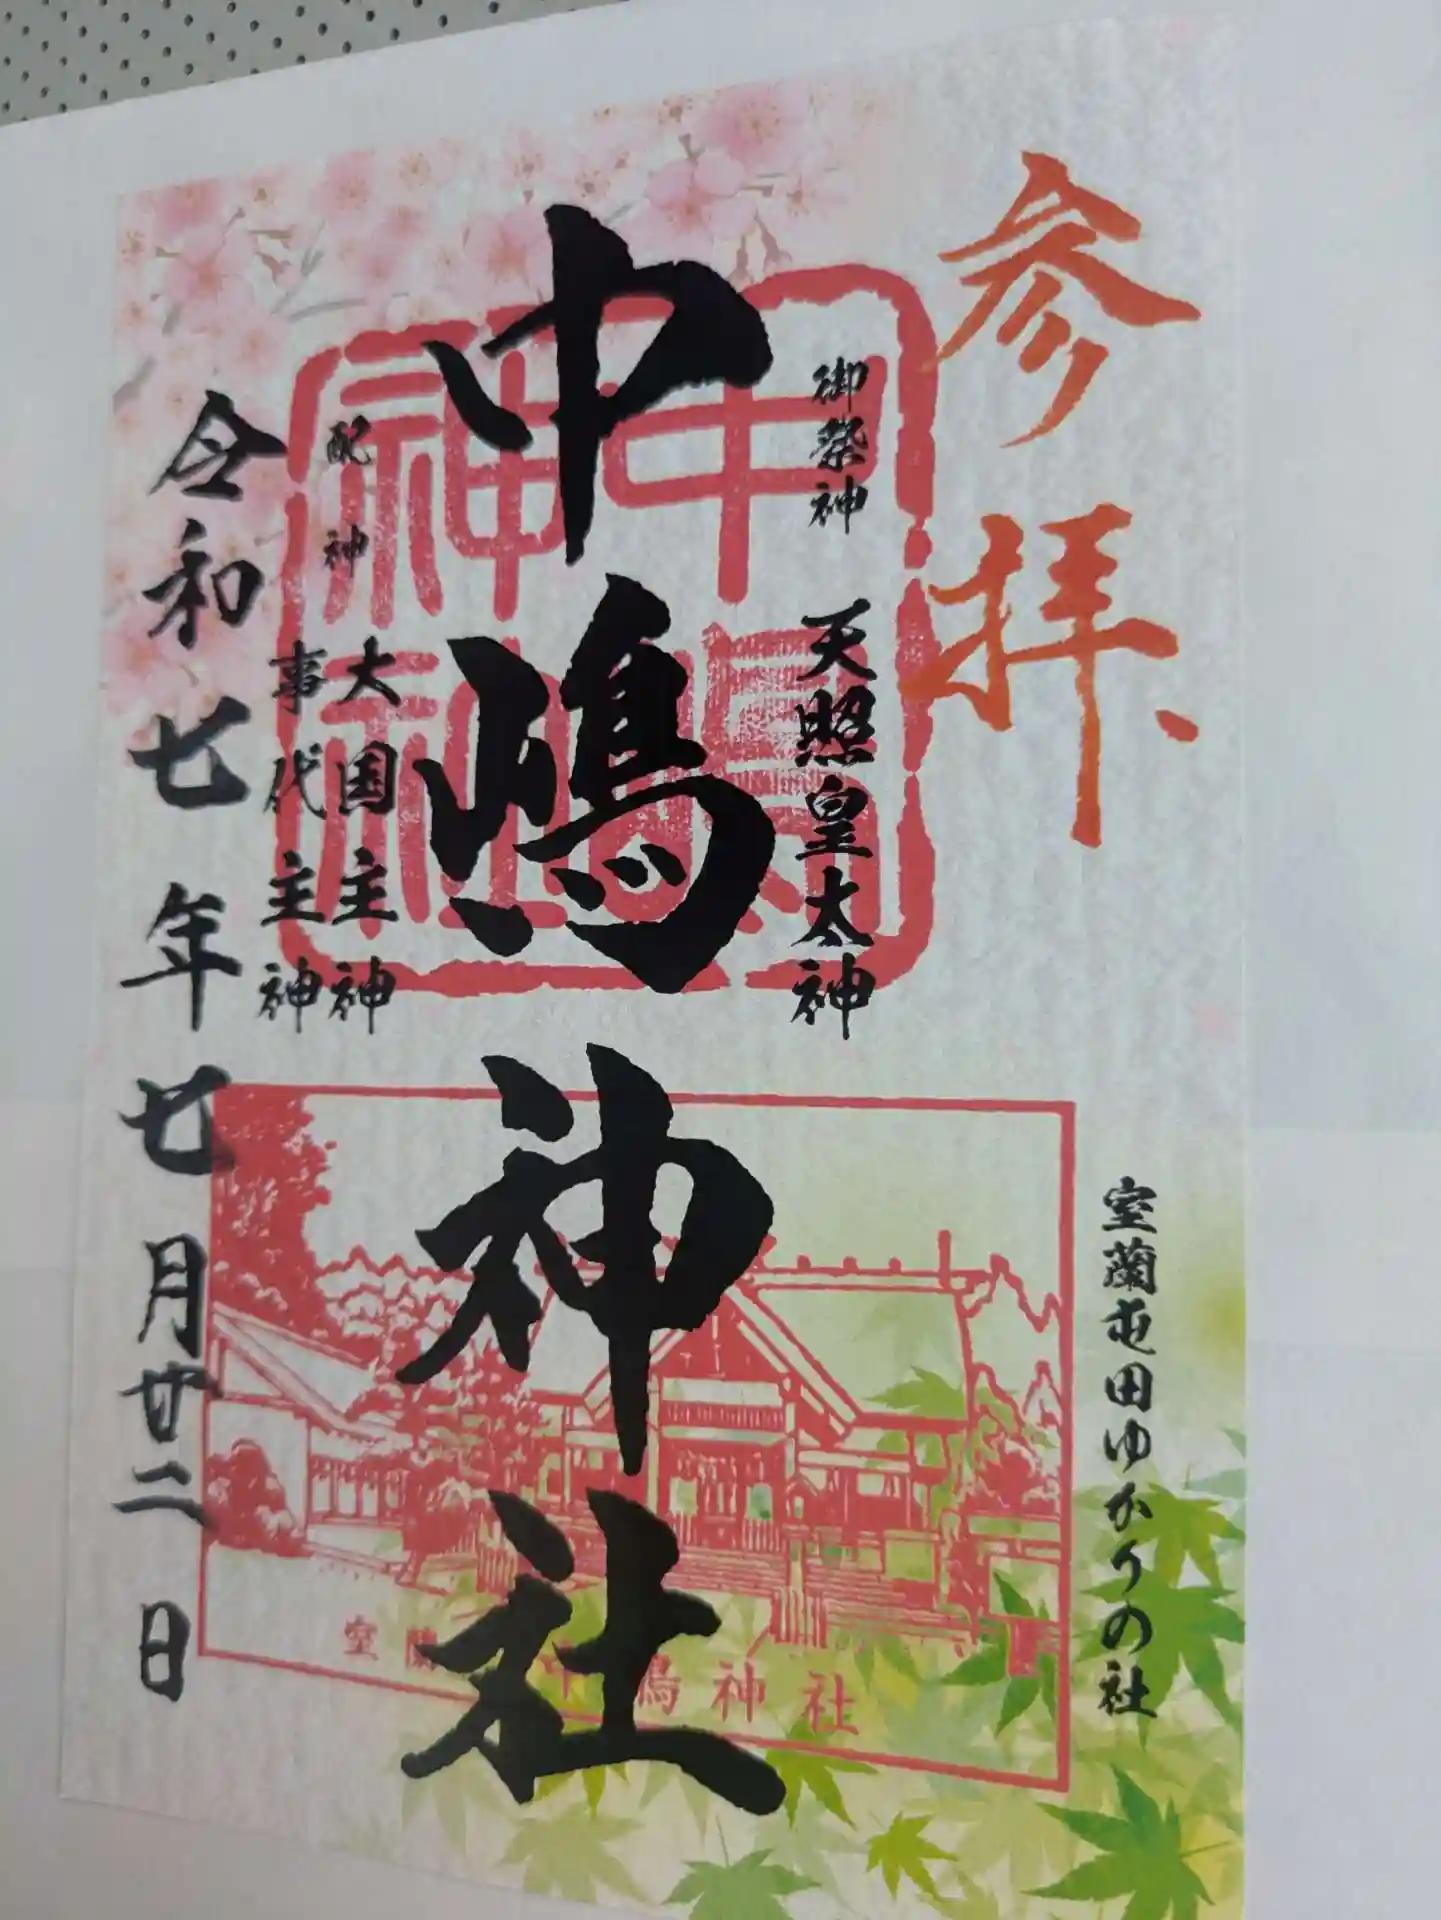 参拝
室蘭屯田ゆかりの社
御祭神 天照皇太神
中嶋神社
配神 大国主神
事代主神
令和七年七月廿二日
中嶋神社
室蘭 中嶋神社